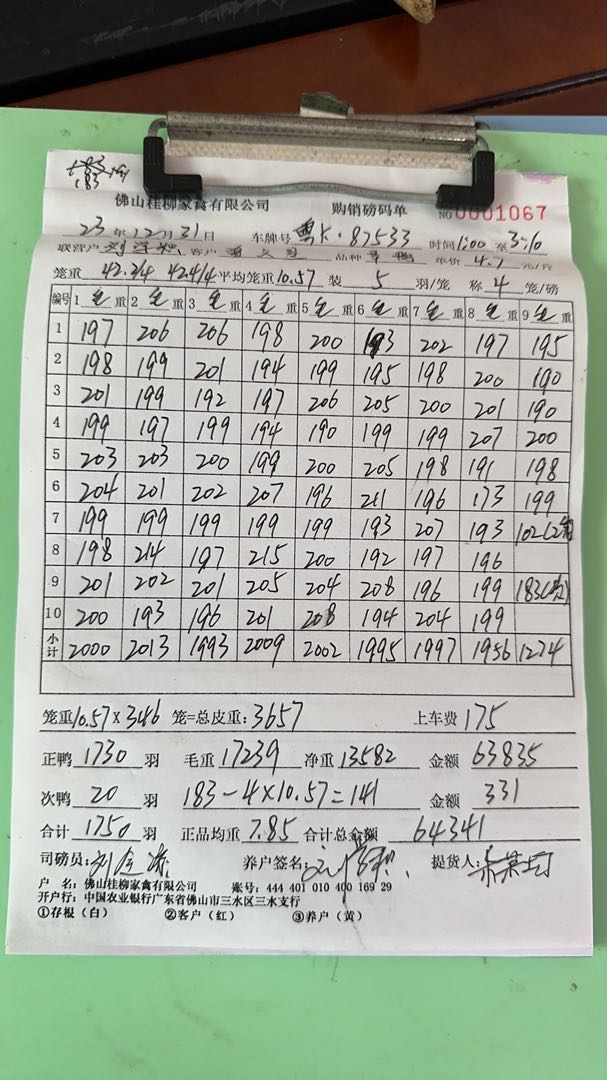 183
佛山桂柳家禽有限公司 购销磅码单 NO 0001067
23年12月31日 车牌号 粤K·87533 时间1:00至3:10
联营户 客户 品种 单价 4.7 元/斤
笼重 42.24 42.4/4 平均笼重10.57 装 5 羽/笼 称 4 笼/磅
编号 1 毛重 2 毛重 3 毛重 4 毛重 5 毛重 6 毛重 7 毛重 8 毛重 9 毛重
1 197 206 206 198 200 193 202 197 195
2 198 199 201 194 199 195 198 200 190
3 201 199 192 197 206 205 200 201 190
4 199 197 199 194 190 199 199 207 200
5 203 203 200 199 200 205 198 191 198
6 204 201 202 207 196 211 196 173 199
7 199 199 199 199 199 193 207 193 102(2笼)
8 198 214 197 215 200 192 197 196
9 201 202 201 205 204 208 196 199 183
10 200 193 196 201 208 194 204 199
小计 2000 2013 1993 2009 2002 1995 1997 1956 1274
笼重10.57×346 笼=总皮重:3657 上车费 175
正鸭 1730 羽 毛重 17239 净重 13582 金额 63835
次鸭 20 羽 183-4×10.57=141 金额 331
合计 1750 羽 正品均重 7.85 合计总金额 64341
司磅员: 养户签名: 提货人:
户 名:佛山桂柳家禽有限公司 账号:444 401 010 400 169 29
开户行:中国农业银行广东省佛山市三水区三水支行
①存根(白) ②客户(红) ③养户(黄)